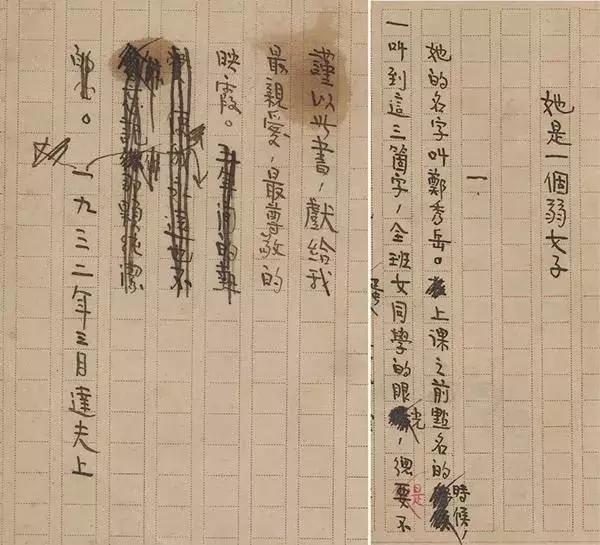 謹以此書，獻給我
最親愛，最尊敬的
映霞。
一九三二年三月達夫上
她是一個弱女子
一.
她的名字叫鄭秀岳。上課之前點名的時候，
一叫到這三箇字，全班女同學的眼光，總是要不